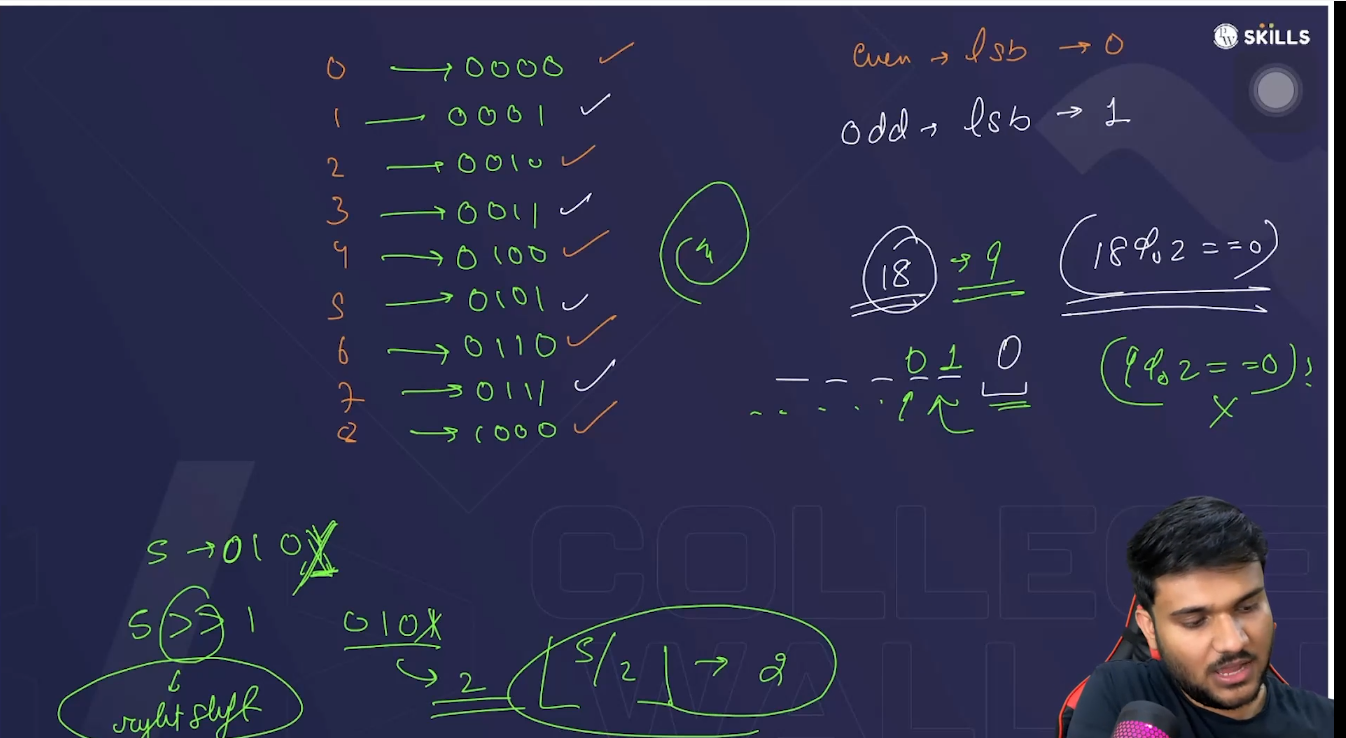 SKILLS
0 → 0000 ✓
1 → 0001 ✓
2 → 0010 ✓
3 → 0011 ✓
4 → 0100 ✓
5 → 0101 ✓
6 → 0110 ✓
7 → 0111 ✓
8 → 1000 ✓
even → lsb → 0
odd → lsb → 1
18 → 9
(18 % 2 == 0)
0 1 0
(9 % 2 == 0)?
X
5 → 0101
5 >> 1
right shift
0101
2
⌊5/2⌋ → 2
COLLEGE
WALLA